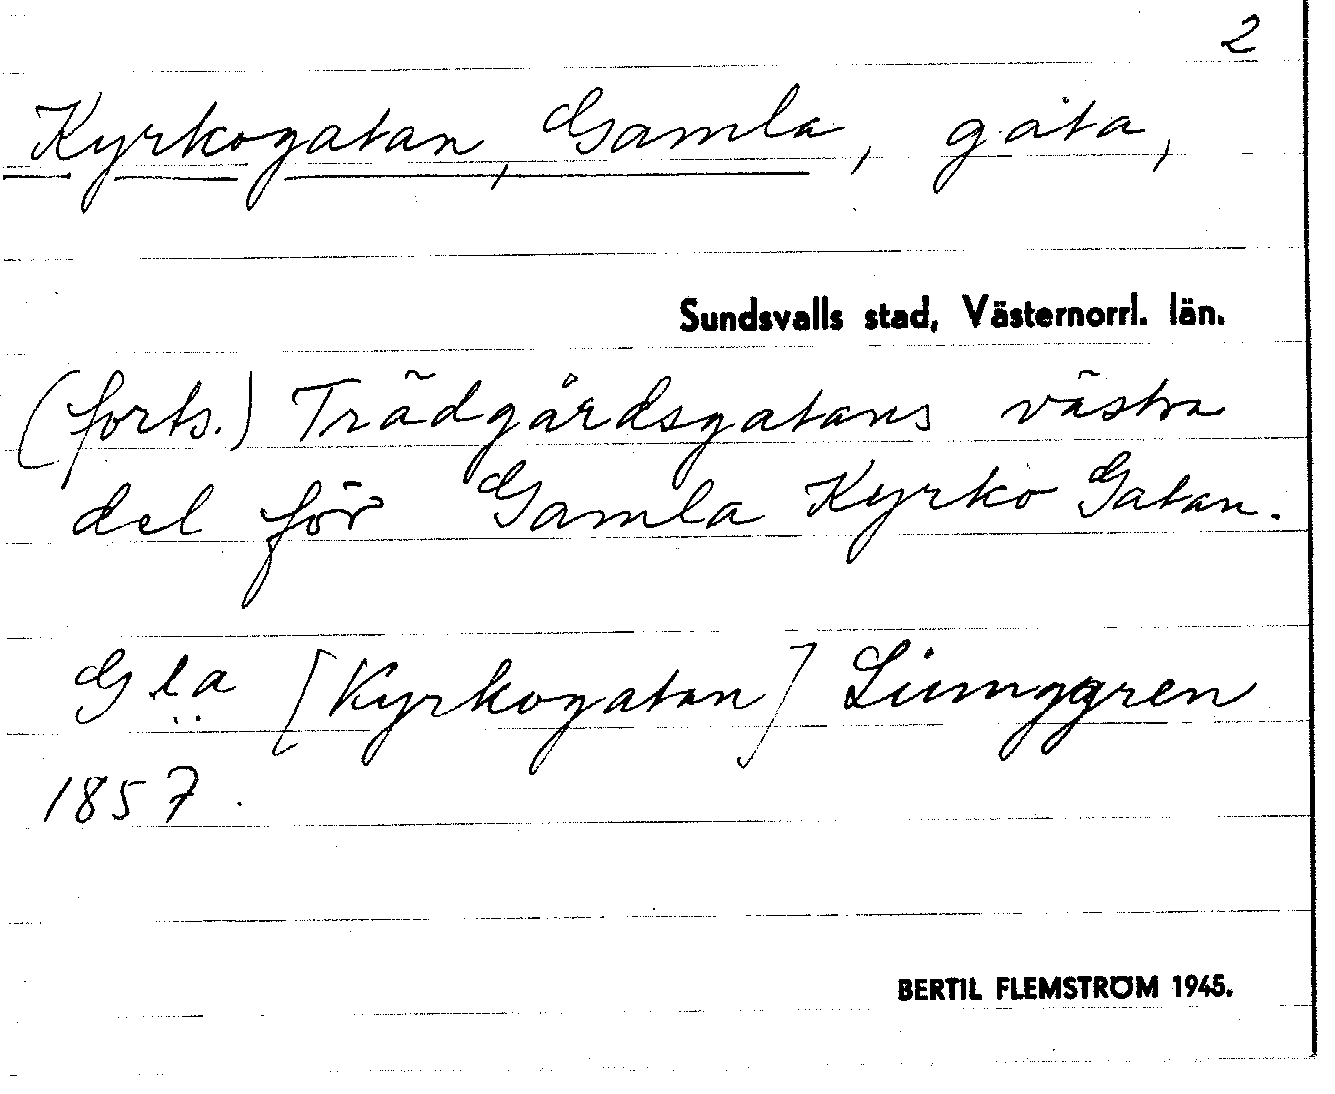 2
Kyrkogatan, Gamla, gata,
Sundsvalls stad, Västernorrl. län.
(forts.) Trädgårdsgatans västra
del för Gamla Kyrko Gatan.
Gla [Kyrkogatan]
1857.
BERTIL FLEMSTRÖM 1945.